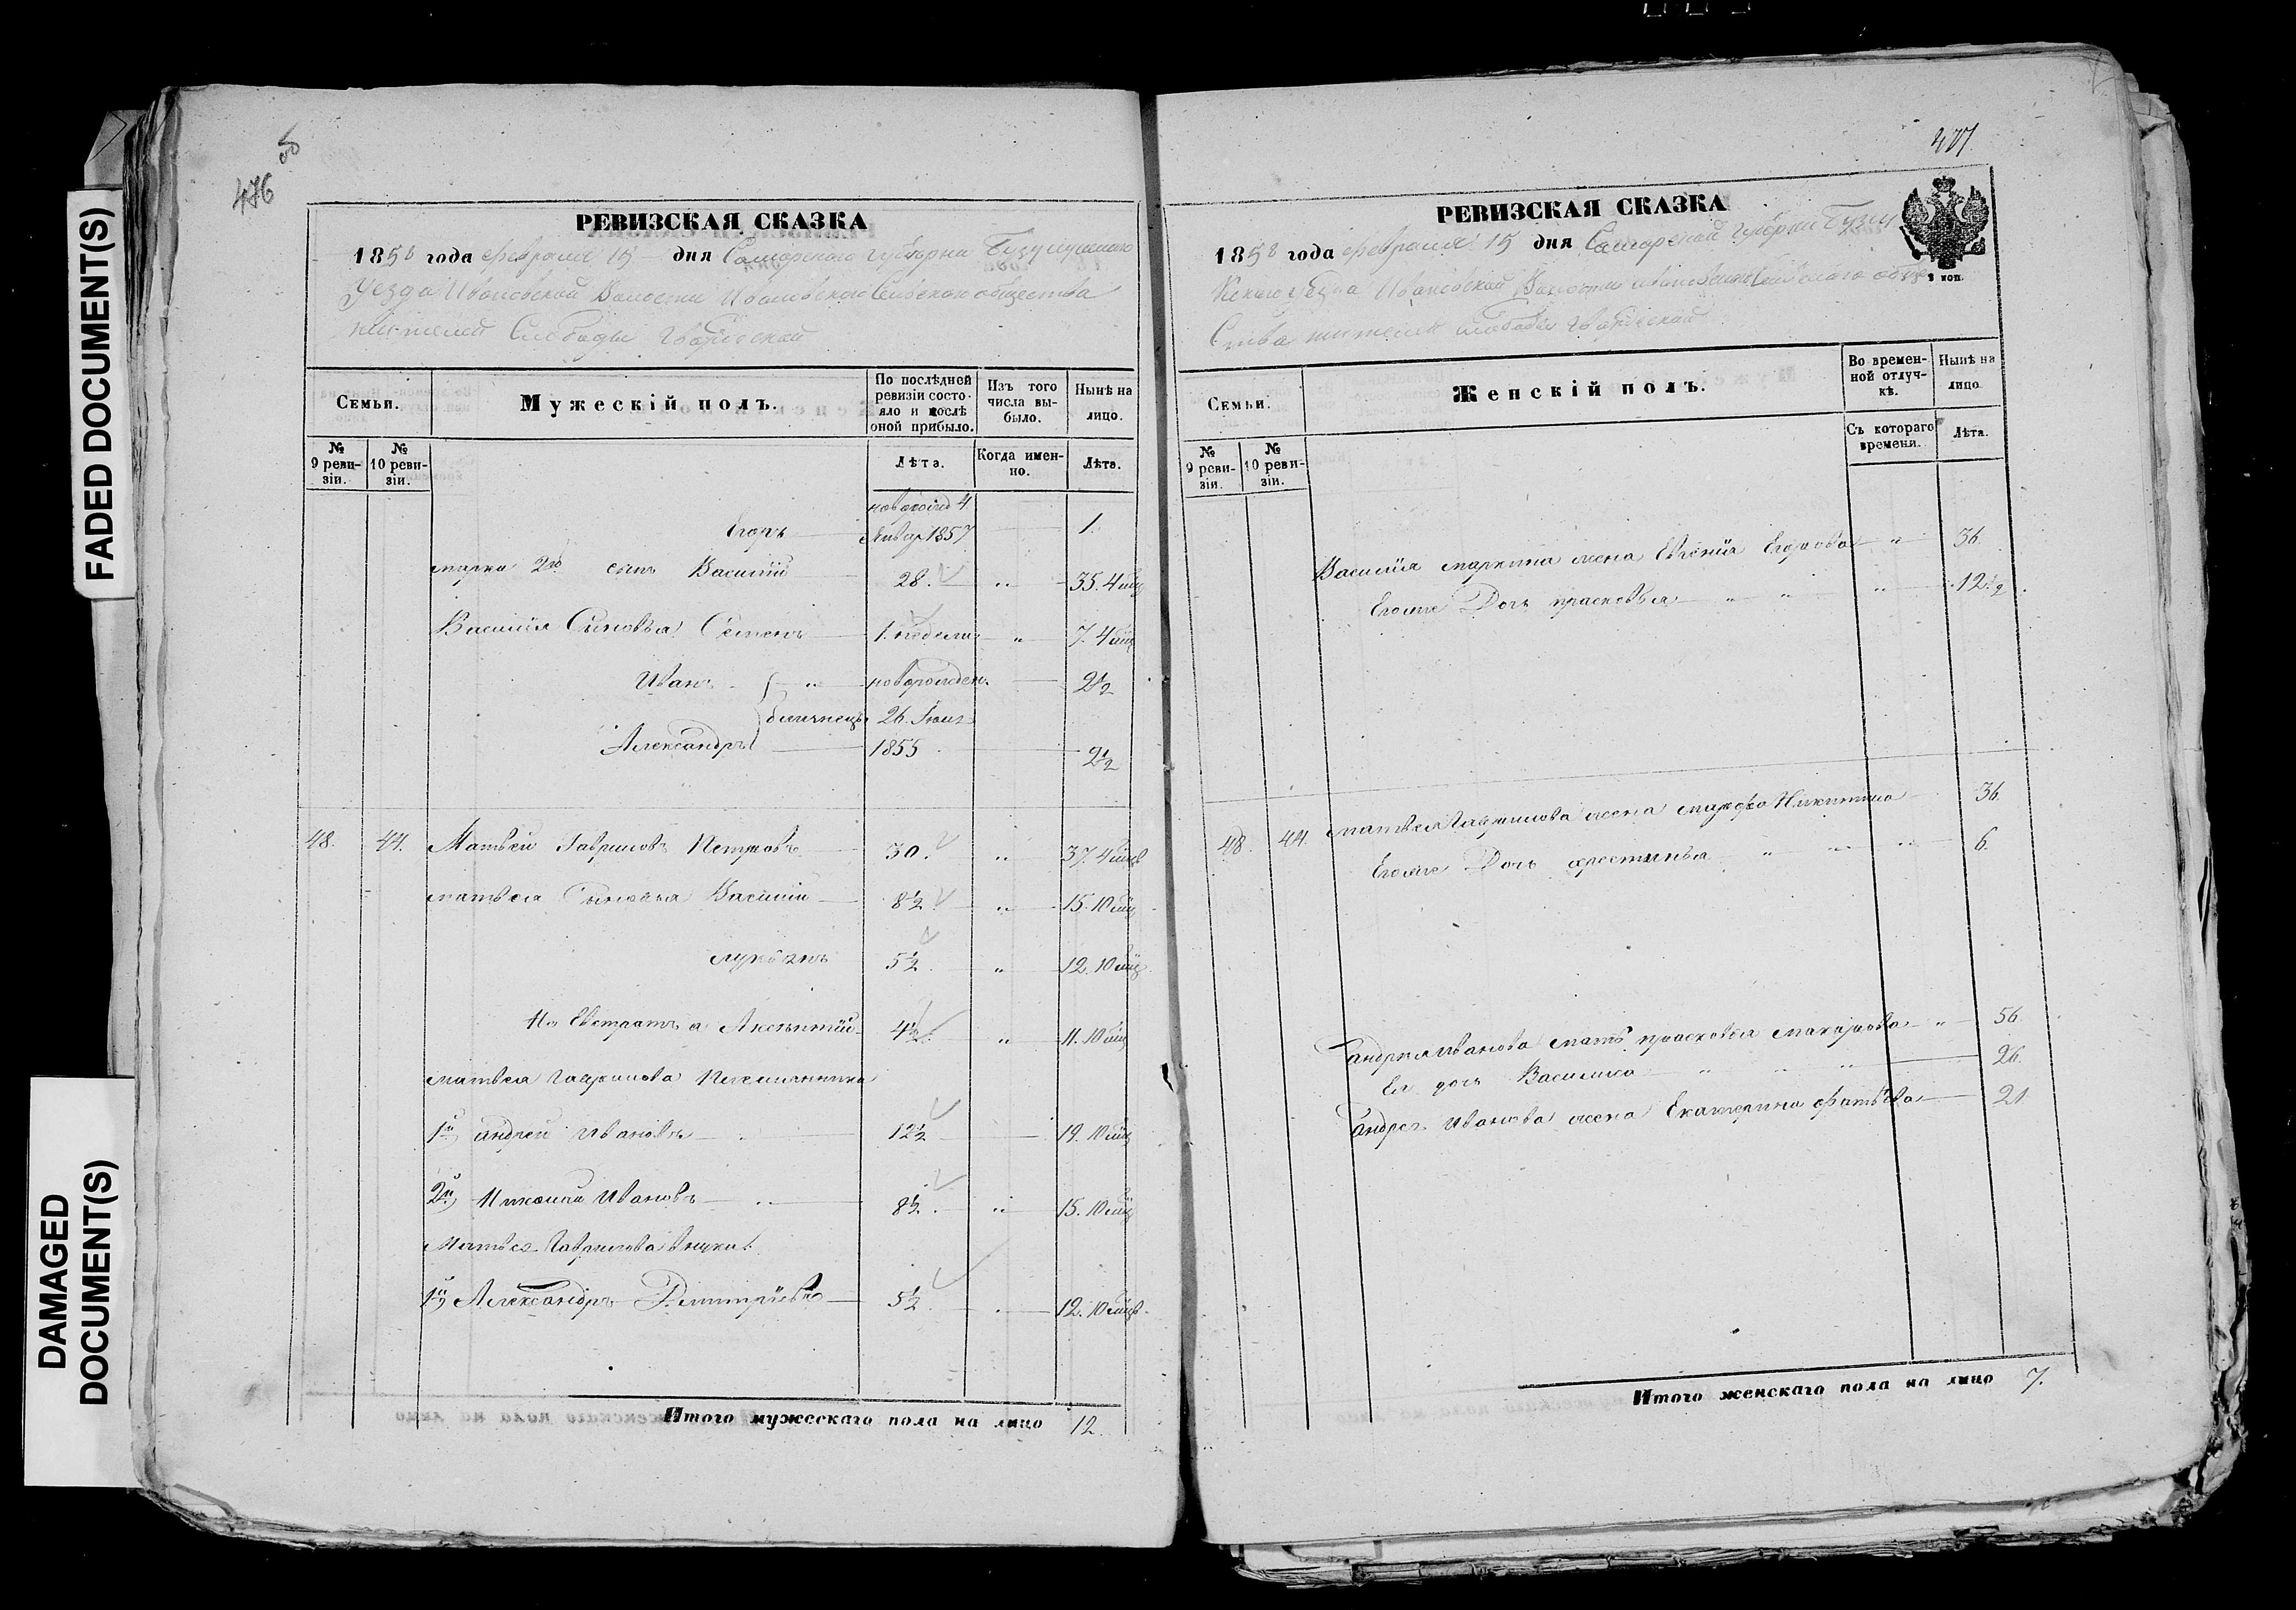 FADED DOCUMENT(S)
DAMAGED
DOCUMENT(S)
476
РЕВИЗСКАЯ СКАЗКА
1858 года февраля 15 дня Самарской губернии Бузулукскаго
Уезда Ивановской Волости Ивановского Сельского общества
жителей Слободы Гвардеской
Семьи.
Мужескій полъ.
По послѣдней ревизіи состояло и послѣ оной прибыло.
Изъ того числа выбыло.
Нынѣ на лицо.
№ 9 ревизіи.
№ 10 ревизіи.
Лѣта.
Когда именно.
Лѣта.
Егоръ новорожд 4 Январ 1857 1.
марка 2го сынъ Василій 28. 35. 4 мц
Василія Сыновья Семенъ 1. недели 7. 4 мц
Иванъ новорожден. 2½
близнецы 26. Іюля
Александръ 1855 2½
48. 44. Матвей Гавриловъ Петровъ 30. 37. 4 мцв
матвея Сыновья Василій 8½ 15. 10 мц
лукьянъ 5½. 12. 10 мц
Не Евстратъ а Лаврентій 4½. 11. 10 мц
матвея Гаврилова Племянники
1й андрей Ивановъ 12½ 19. 10 мц
2й Николай Ивановъ 8½. 15. 10 мц
Матвея Гаврилова внуки
1й Александръ Дмитріевъ 5½. 12. 10 мцв
Итого мужескаго пола на лицо 12.
477
РЕВИЗСКАЯ СКАЗКА
1858 года февраля 15 дня Самарской губерни Бузулу
кскаго уезда Ивановской Волости Ивановского Сельскаго обще
Ства жителей слободы Гвардеской
3 коп.
Семьи.
Женскій полъ.
Во временной отлучкѣ.
Нынѣ на лицо.
№ 9 ревизіи.
№ 10 ревизіи.
Съ котораго времени.
Лѣта.
Василія маркина жена Евгенія Егорова 36.
Егоже Дочь прасковья 12½
48. 44. матвея Гаврилова жена марфа Никитина 36.
Егоже Дочь хрестинья 6.
андрея Иванова мать прасковья макарова 56.
Ея дочь Василиса 26.
андрея Иванова жена Екатерина фатѣева 21
Итого женскаго пола на лицо 7.